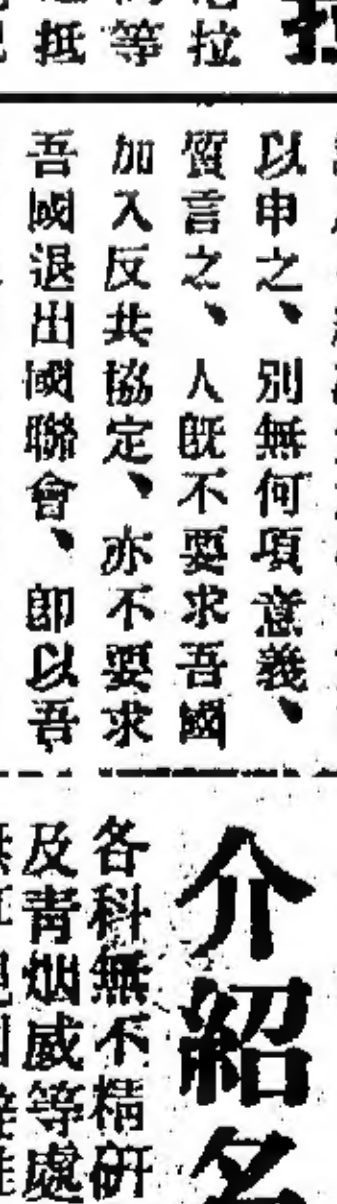 拉
等
抵
以申之、別無何項意義、
質言之、人既不要求吾國
加入反共協定、亦不要求
吾國退出國聯會、即以吾
介紹名
各科無不精研
及青烟威等處